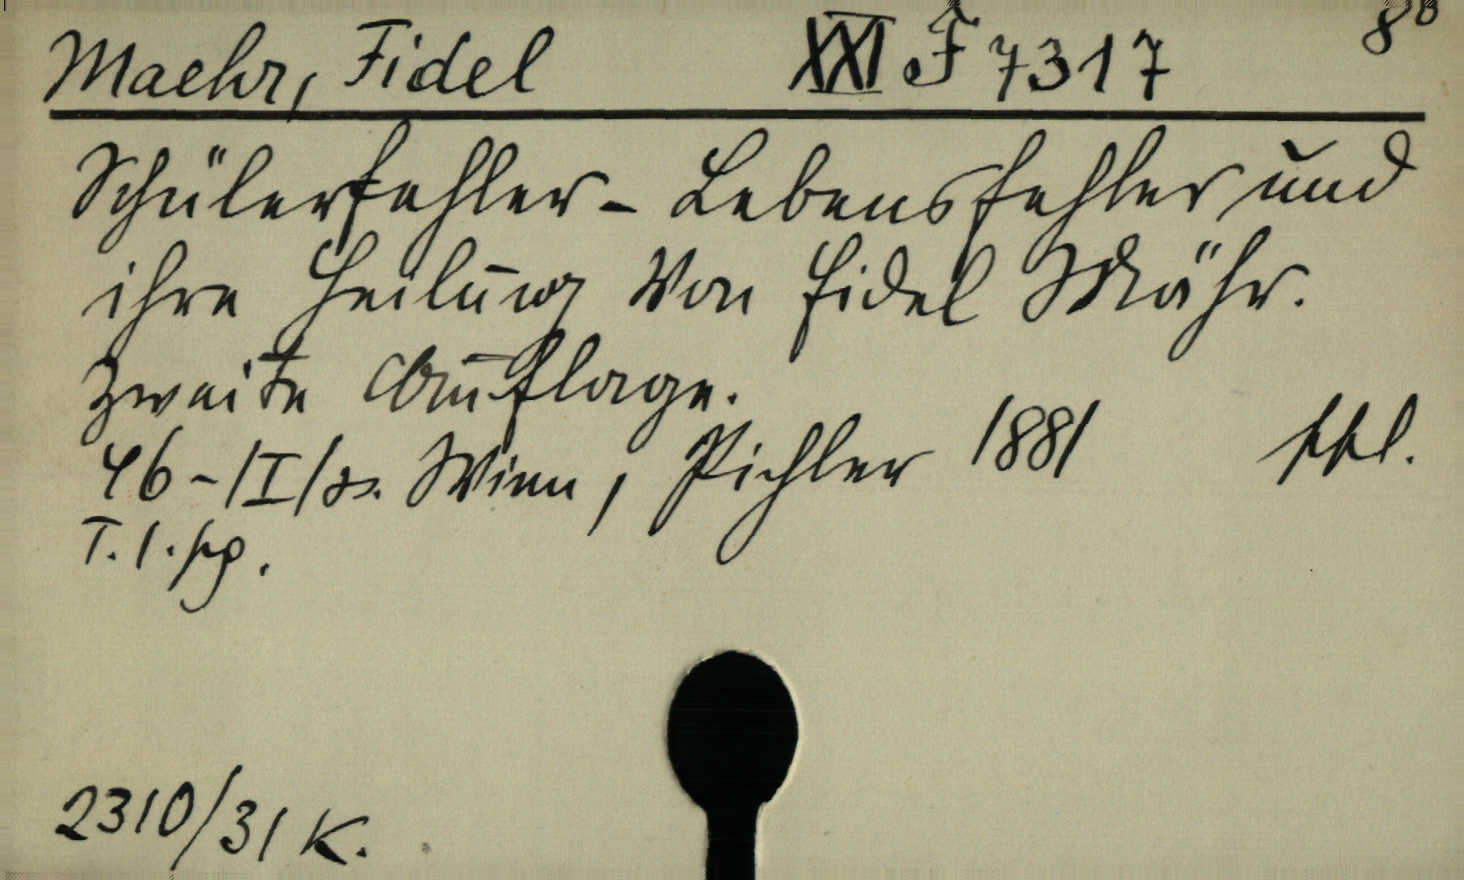 Maehr, Fidel XXI F 7317 8°
Schülerfehler - Lebensfehler und
ihre Heilung Von Fidel Mähr.
Zweite Auflage.
46 - /I/ s. Wien, Pichler 1881
T. 1. sg.
2310/31 K.